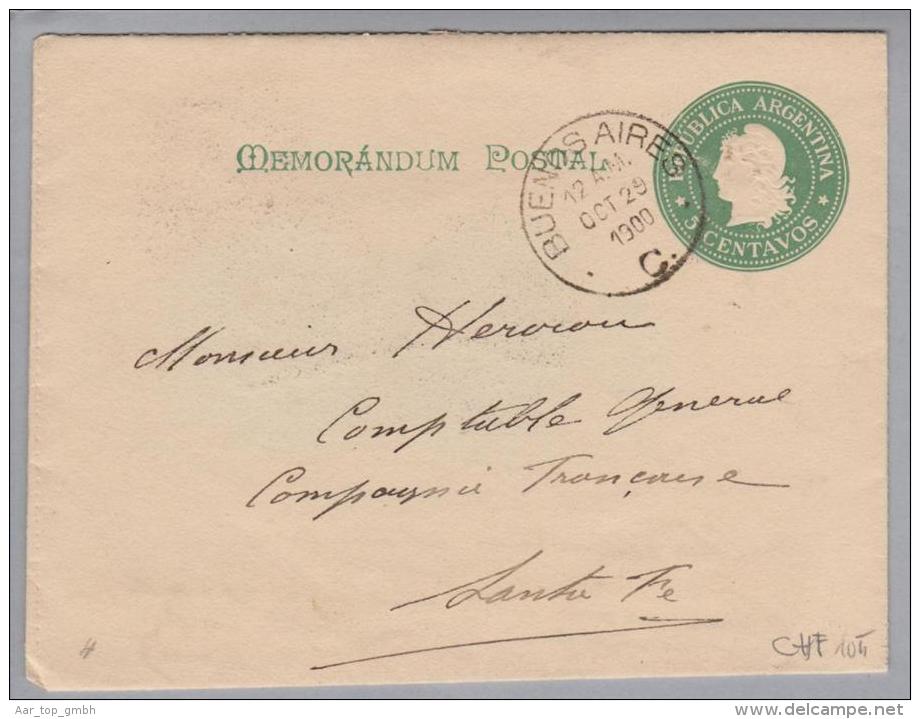 REPUBLICA ARGENTINA
5 CENTAVOS
MEMORÁNDUM POSTAL
BUENOS AIRES
12 A.M.
OCT 29
1900
Monsieur
Comptable General
Compagnie Française
Santa Fe
4
CHF
Aar_top_gmbh
www.delcampe.net